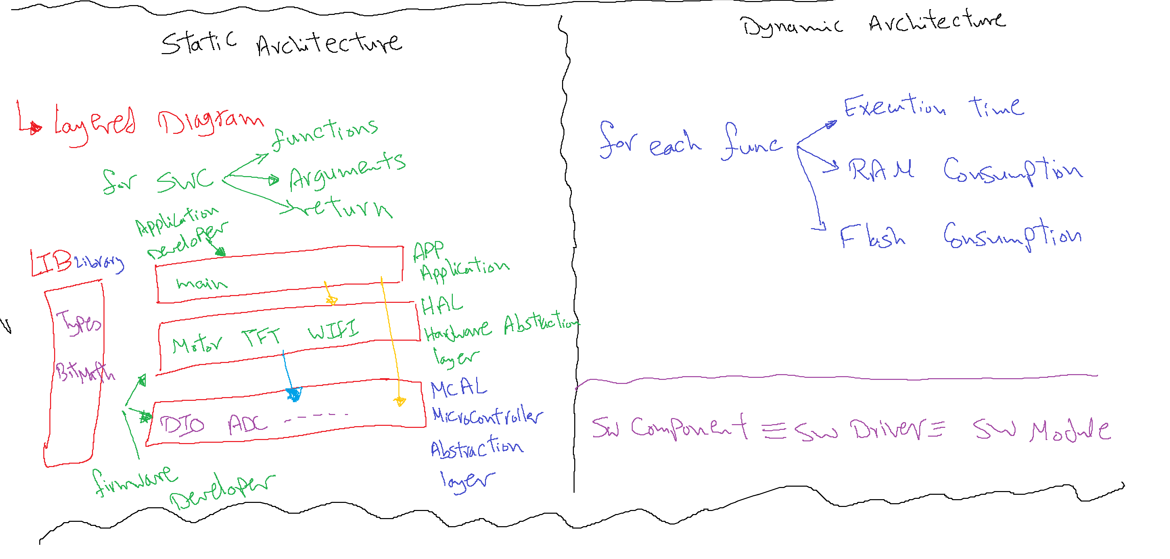 Static Architecture
Layered Diagram
for SWC
functions
Arguments
return
Application
Developer
LIB Library
Types
BitMath
main
APP
Application
Motor TFT WIFI
HAL
Hardware Abstraction
layer
DIO ADC -----
MCAL
MicroController
Abstraction
layer
firmware
Developer
Dynamic Architecture
for each func
Execution time
RAM Consumption
Flash Consumption
SW Component ≡ SW Driver ≡ SW Module